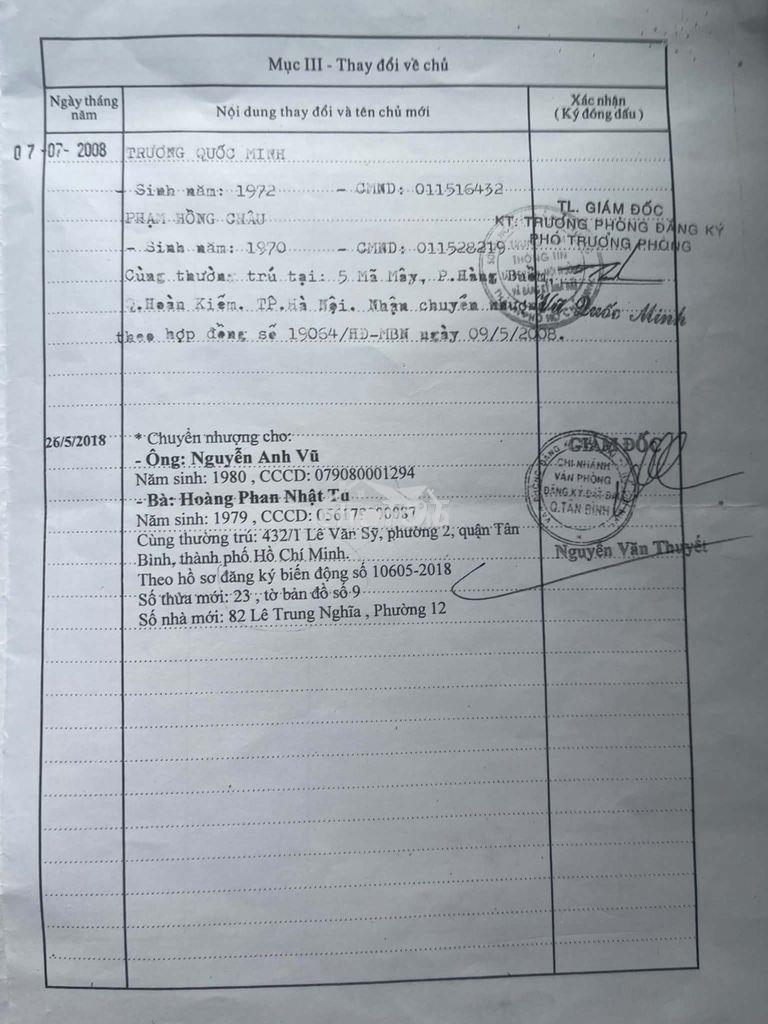 Mục III - Thay đổi về chủ
Ngày tháng năm
Nội dung thay đổi và tên chủ mới
Xác nhận
( Ký đóng dấu )
07-07-2008
TRƯƠNG QUỐC MINH
- Sinh năm: 1972 - CMND: 011516432
PHẠM HỒNG CHÂU
- Sinh năm: 1970 - CMND: 011528219
Cùng thường trú tại: 5 Mã Mây, P.Hàng Buồm
Q.Hoàn Kiếm. TP.Hà Nội. Nhận chuyển nhượng
theo hợp đồng số 19064/HĐ-MBN ngày 09/5/2008.
TL. GIÁM ĐỐC
KT. TRƯỞNG PHÒNG ĐĂNG KÝ
PHÓ TRƯỞNG PHÒNG
THÔNG TIN
Vũ Quốc Minh
26/5/2018
* Chuyển nhượng cho:
- Ông: Nguyễn Anh Vũ
Năm sinh: 1980 , CCCD: 079080001294
- Bà: Hoàng Phan Nhật Tu
Năm sinh: 1979 , CCCD:
Cùng thường trú: 432/1 Lê Văn Sỹ, phường 2, quận Tân
Bình, thành phố Hồ Chí Minh.
Theo hồ sơ đăng ký biến động số 10605-2018
Số thửa mới: 23 , tờ bản đồ số 9
Số nhà mới: 82 Lê Trung Nghĩa , Phường 12
GIÁM ĐỐC
CHI NHÁNH
VĂN PHÒNG
ĐĂNG KÝ ĐẤT ĐAI
Q.TÂN BÌNH
Nguyễn Văn Thuyết